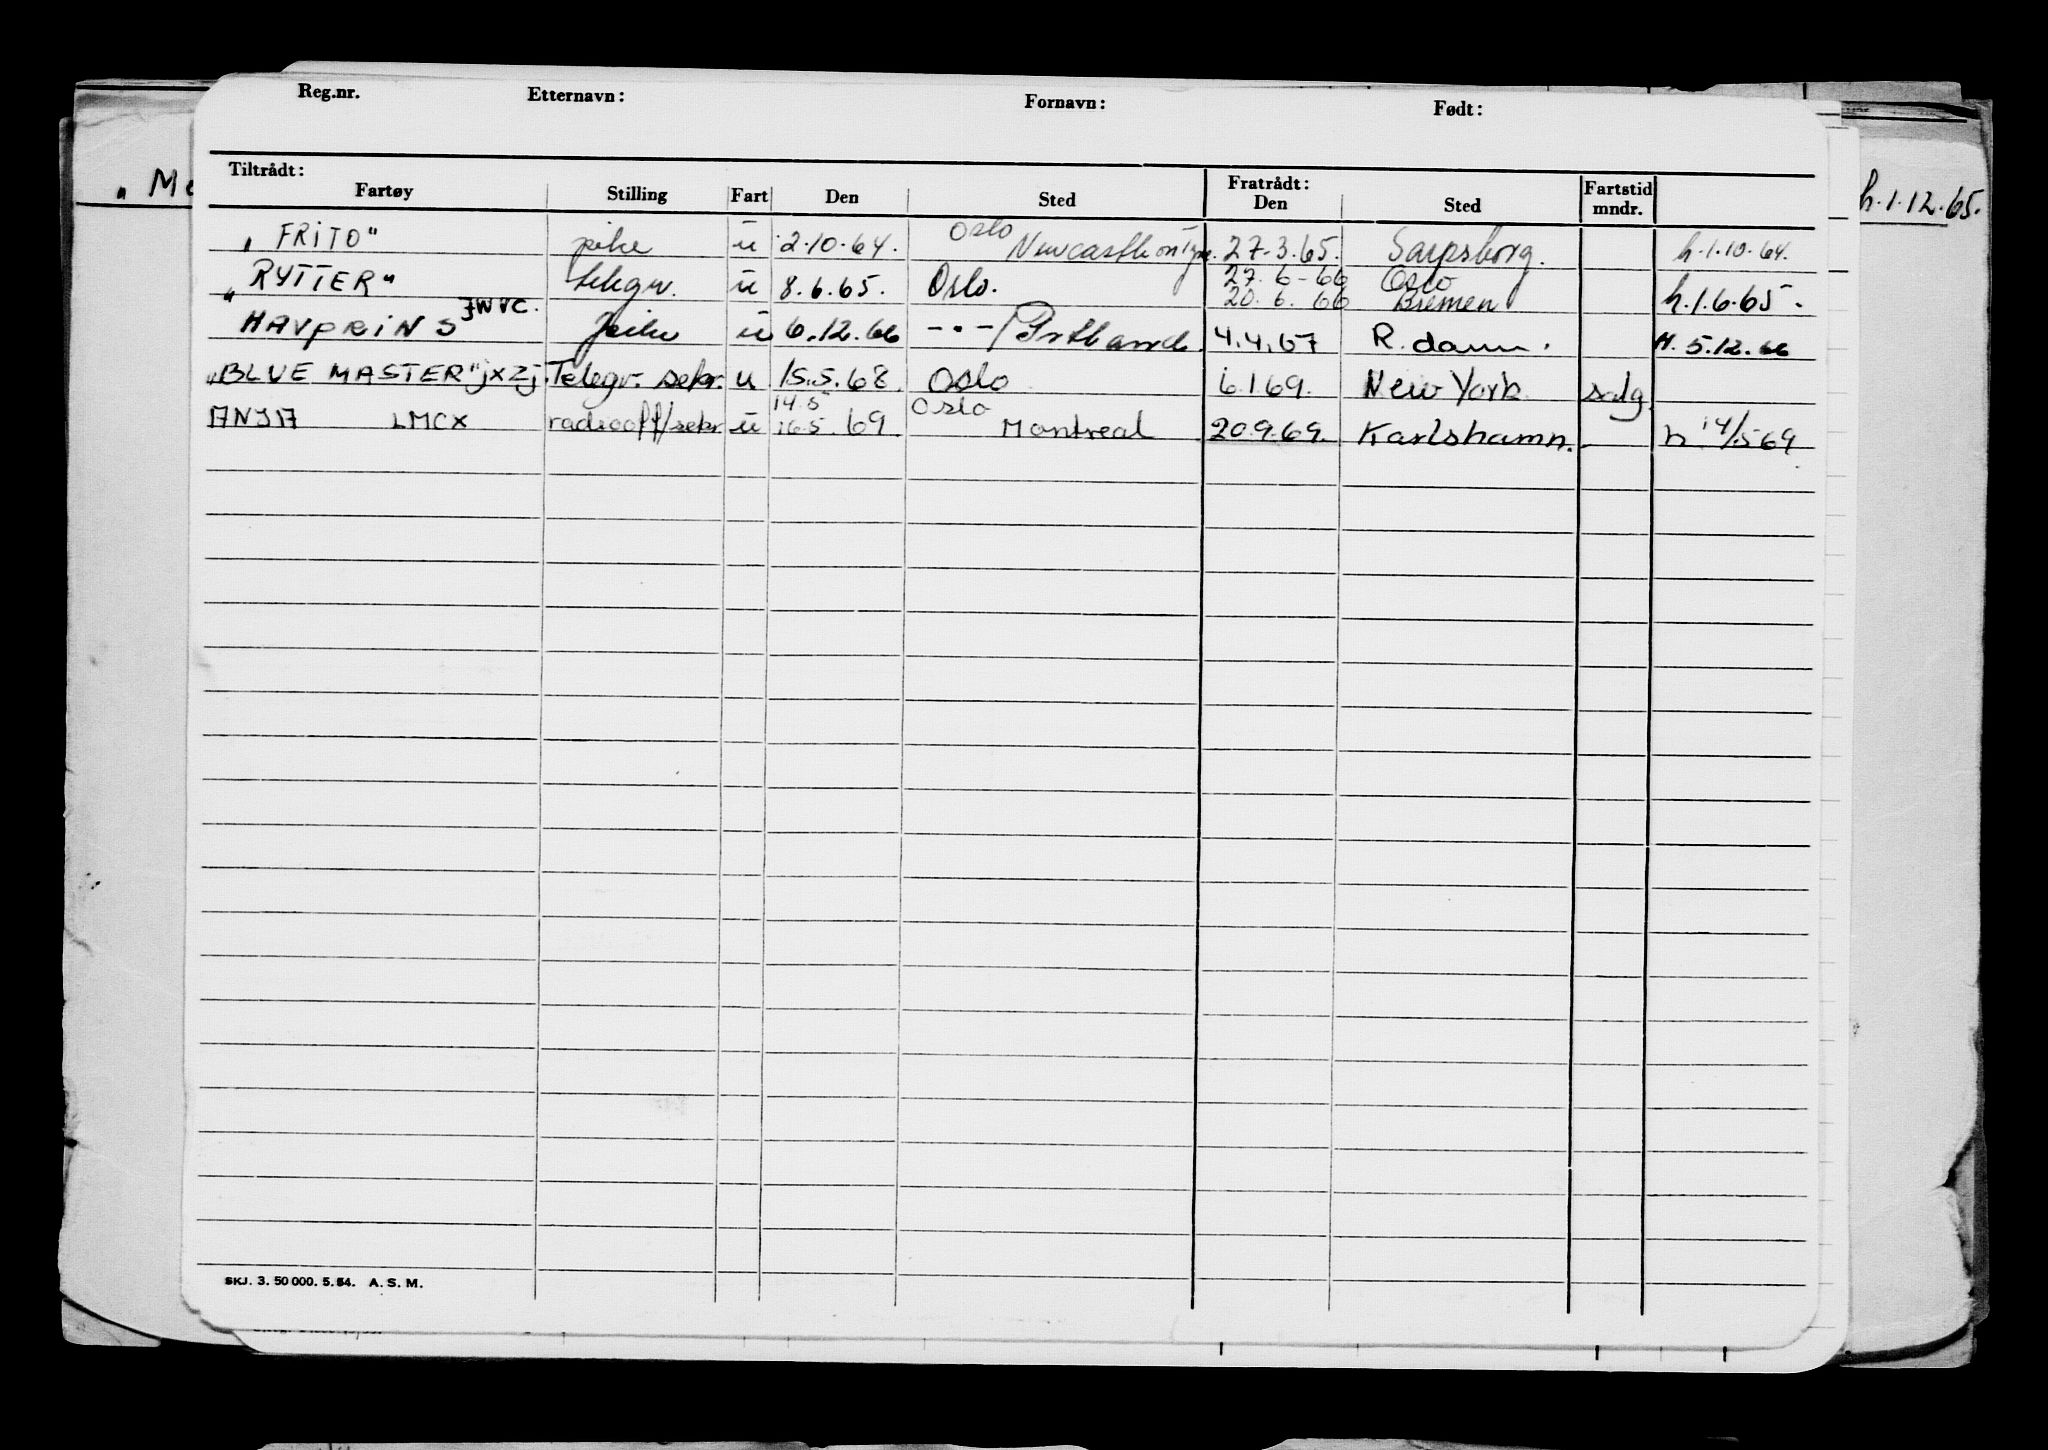 Reg.nr. Etternavn: Fornavn: Født:
Tiltrådt: Fratrådt:
Fartøy Stilling Fart Den Sted Den Sted Fartstid mndr.
„Me h.1.12.65.
„FRITO" ü 2.10.64. Oslo Newcastle on Tyne. 27.3.65. Sarpsborg. h.1.10.64.
27.6-66 Oslo
„RYTTER" telegr. ü 8.6.65. Oslo. 20.6.66 Bremen h.1.6.65.
HAVPRINS JWVC. ü 6.12.66 -"-/Portland 4.4.67 R.dam. H.5.12.66
„BLUE MASTER" jxzj. Telegr. sekr. u 15.5.68. Oslo 6.1.69. New York salg.
14.5 Oslo
ANJA LMCX radiooff/sekr ü 16.5.69 Montreal 20.9.69. Karlshamn. h 14/5 69
SKJ. 3. 50 000. 5. 64. A. S. M.